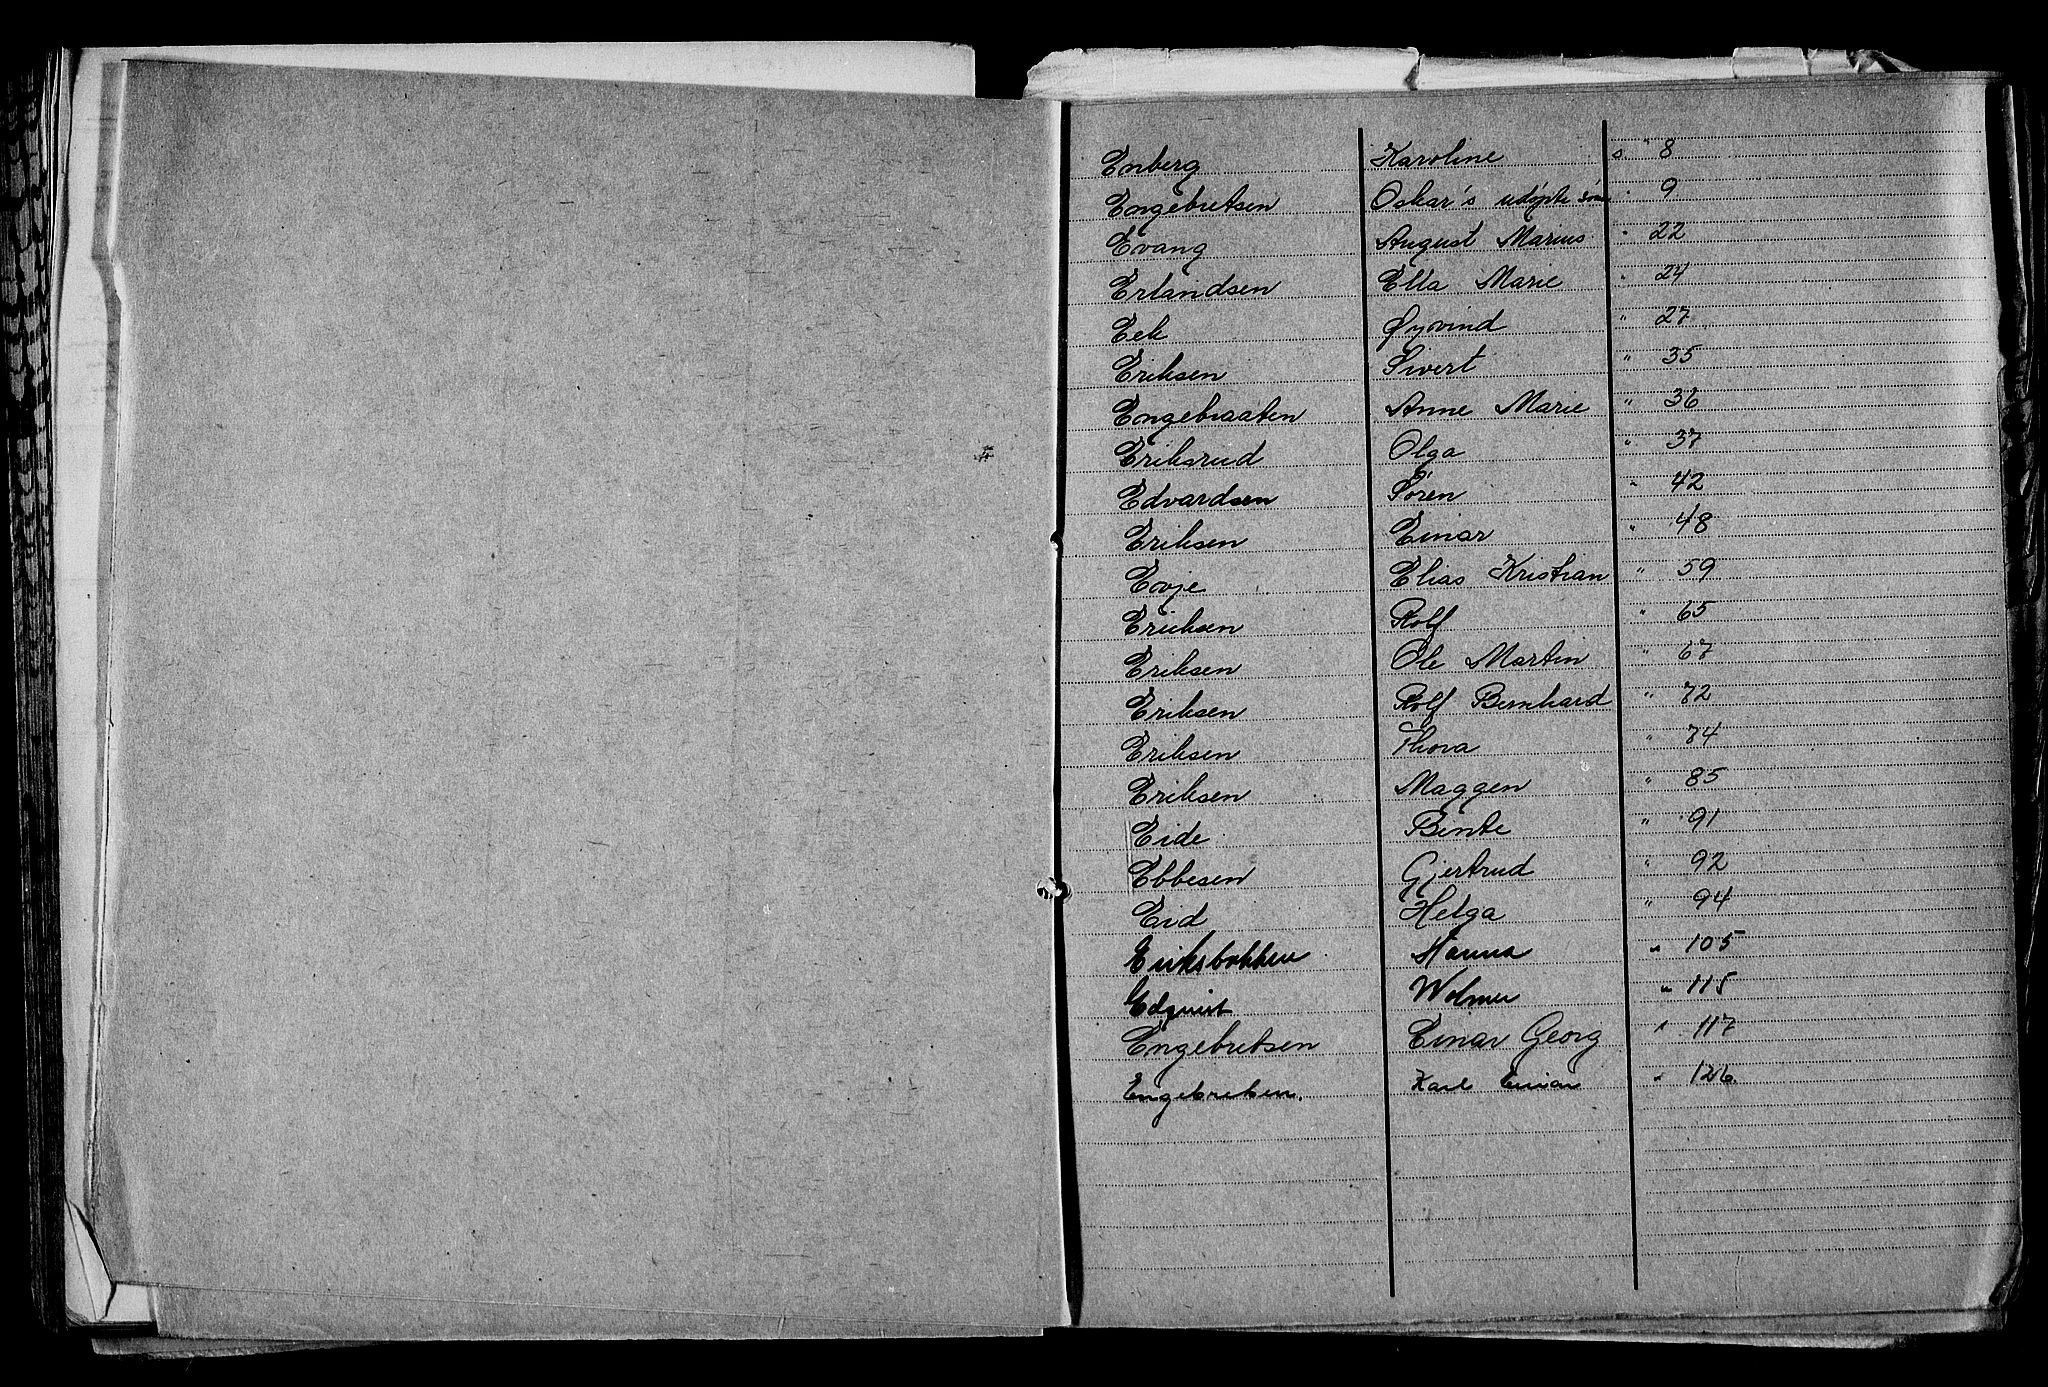 Enberg Karoline s 8
Engebretsen Oskar's udøpte søn " 9
Evang August Marius " 22
Erlandsen Ella Marie " 24
Eek Øyvind " 27
Eriksen Sivert " 35
Engebraaten Anne Marie " 36
Eriksrud Olga " 37
Edvardsen Søren " 42
Eriksen Einar " 48
Evje Elias Kristian " 59
Ericksen Rolf " 65
Eriksen Ole Martin " 67
Eriksen Rolf Bernhard " 72
Eriksen Thora " 74
Eriksen Maggen " 85
Eide Bente " 91
Ebbesen Gjertrud " 92
Eid Helga " 94
Eriksbakken Hanna " 105
Edquist Wolmer " 115
Engebretsen Einar Georg " 117
Engebretsen. Karl Einar " 126.